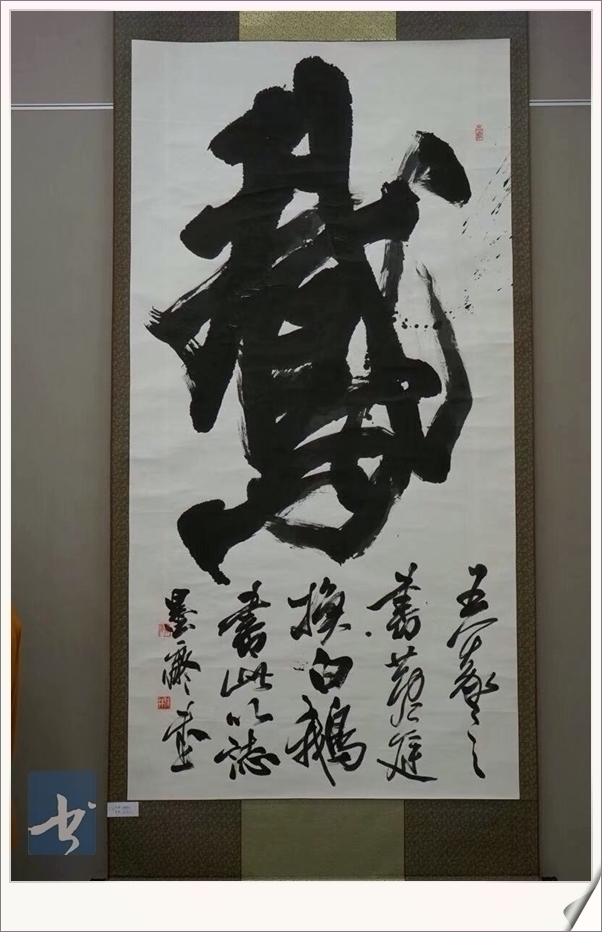 鵞
王羲之
書黄庭
換白鵝
書此以誌
墨
书